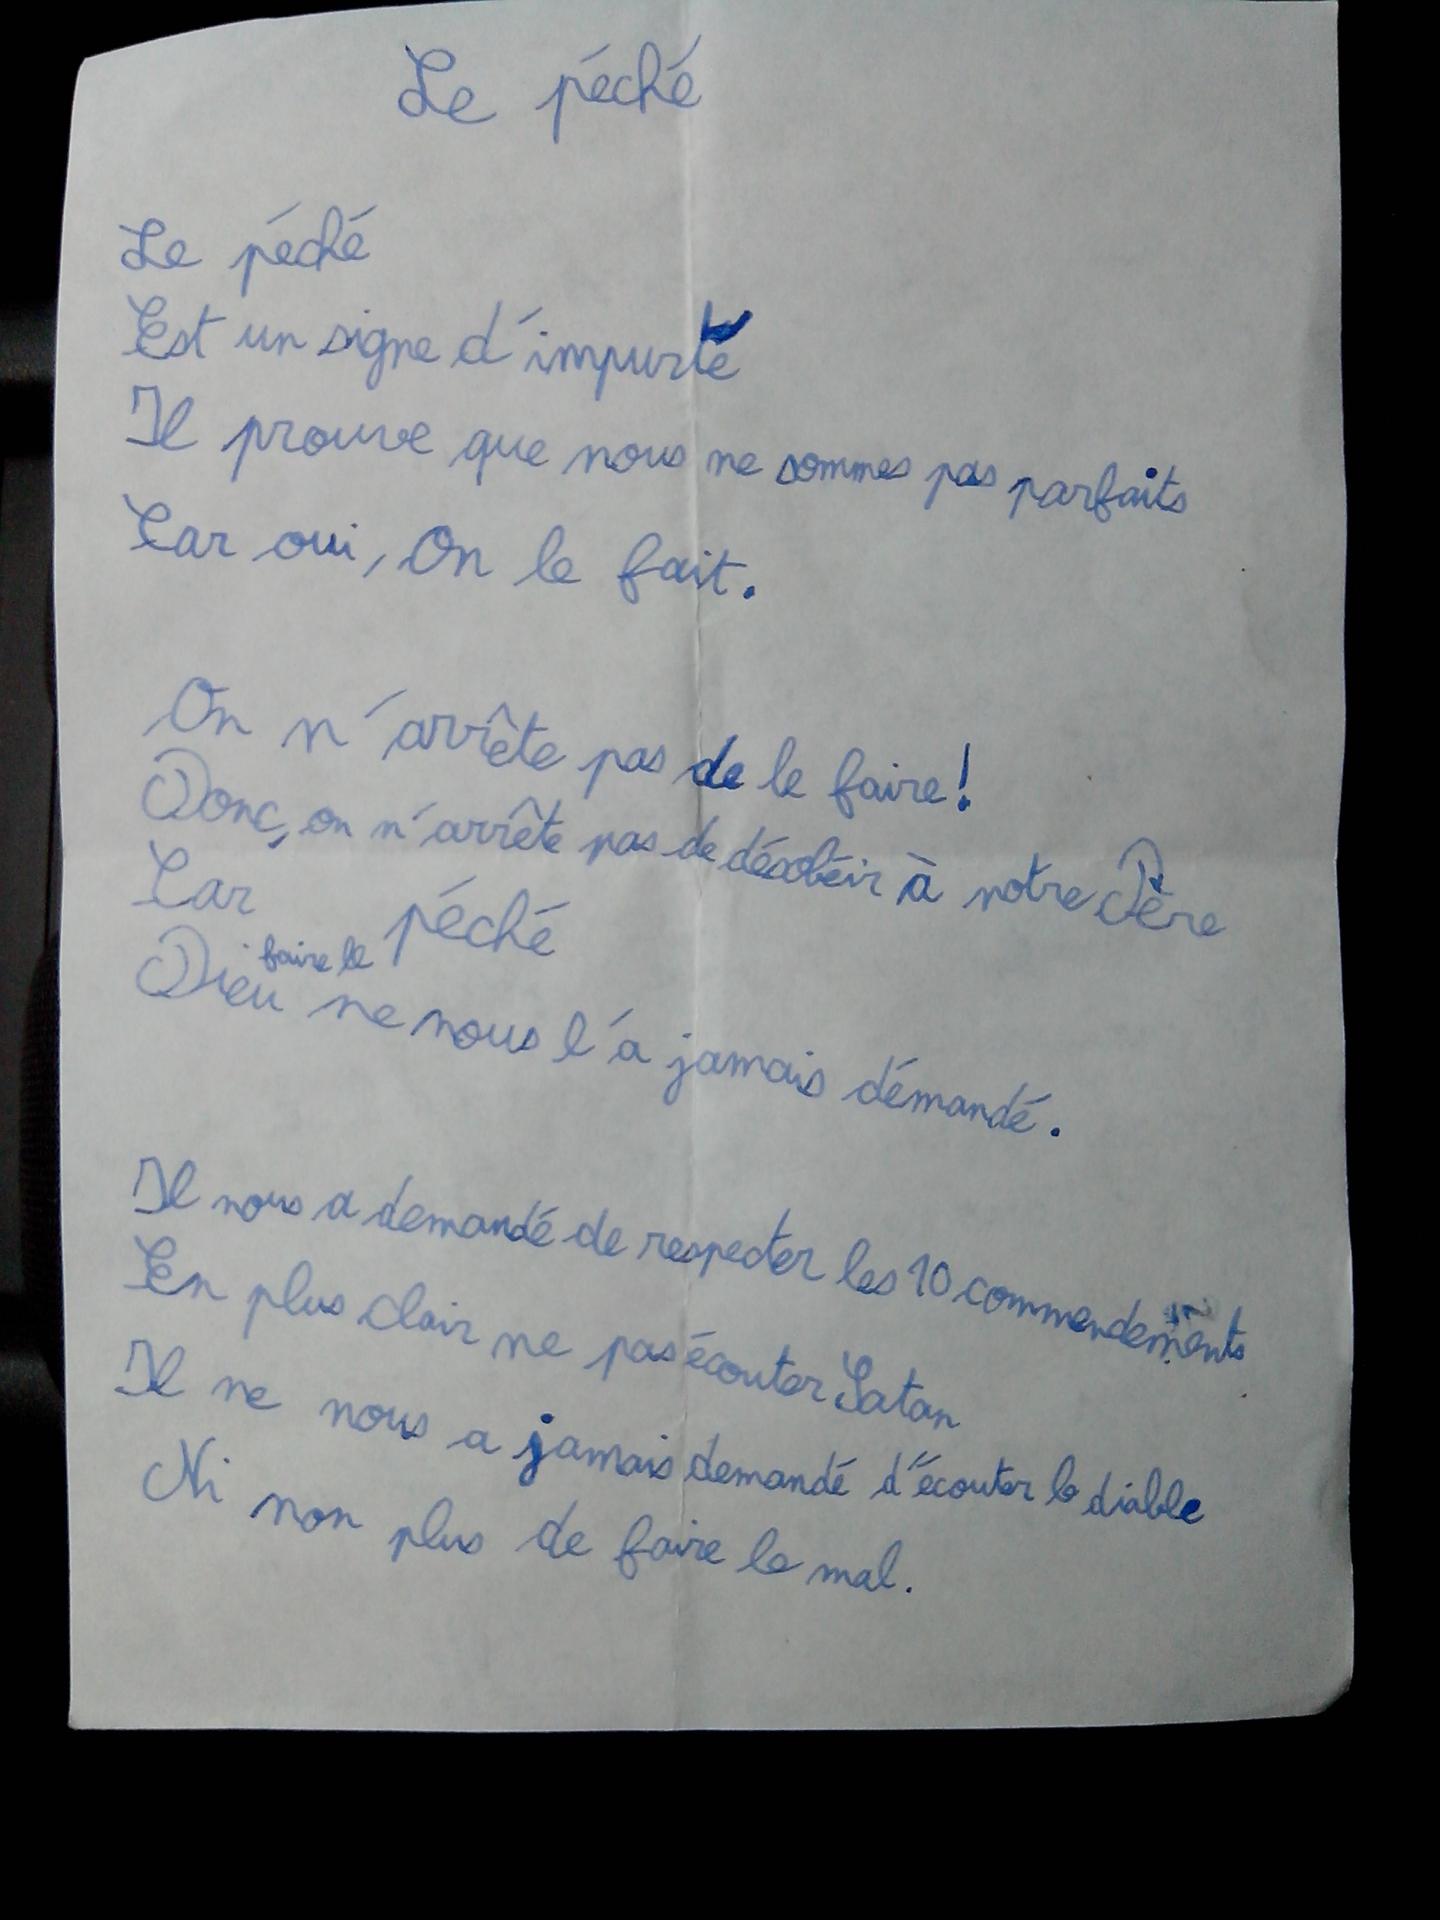 Le péché
Le péché
Est un signe d'impurté
Il prouve que nous ne sommes pas parfaits
Car oui, On le fait.
On n'arrête pas de le faire!
Donc, on n'arrête pas de désobéir à notre Père
Car faire le péché
Dieu ne nous l'a jamais démandé.
Il nous a demandé de respecter les 10 commendements
En plus clair ne pas écouter Satan
Il ne nous a jamais demandé d'écouter le diable
Ni non plus de faire le mal.